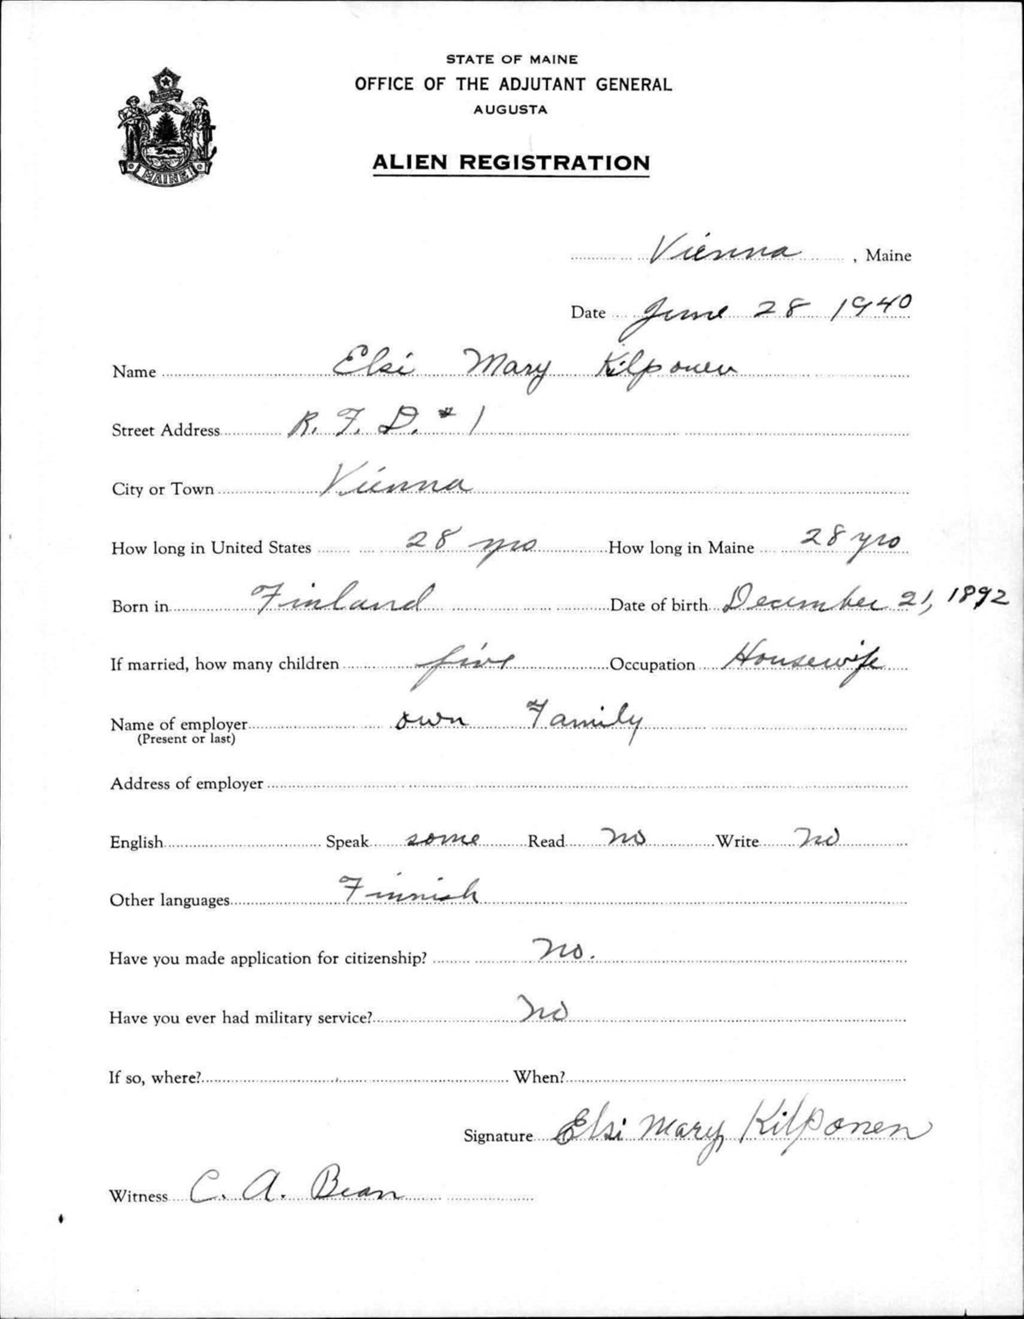 STATE OF MAINE
OFFICE OF THE ADJUTANT GENERAL
AUGUSTA
ALIEN REGISTRATION
MAINE
Vienna, Maine
Date June 28 1940
Name Elsi Mary Kilponen
Street Address R. F. D. #1
City or Town Vienna
How long in United States 28 yrs How long in Maine 28 yrs
Born in Finland Date of birth December 21, 1892
If married, how many children five Occupation Housewife
Name of employer own Family
(Present or last)
Address of employer
English Speak some Read no Write no
Other languages Finnish
Have you made application for citizenship? No.
Have you ever had military service? No
If so, where? When?
Signature Elsi Mary Kilponen
Witness C. A. Bean